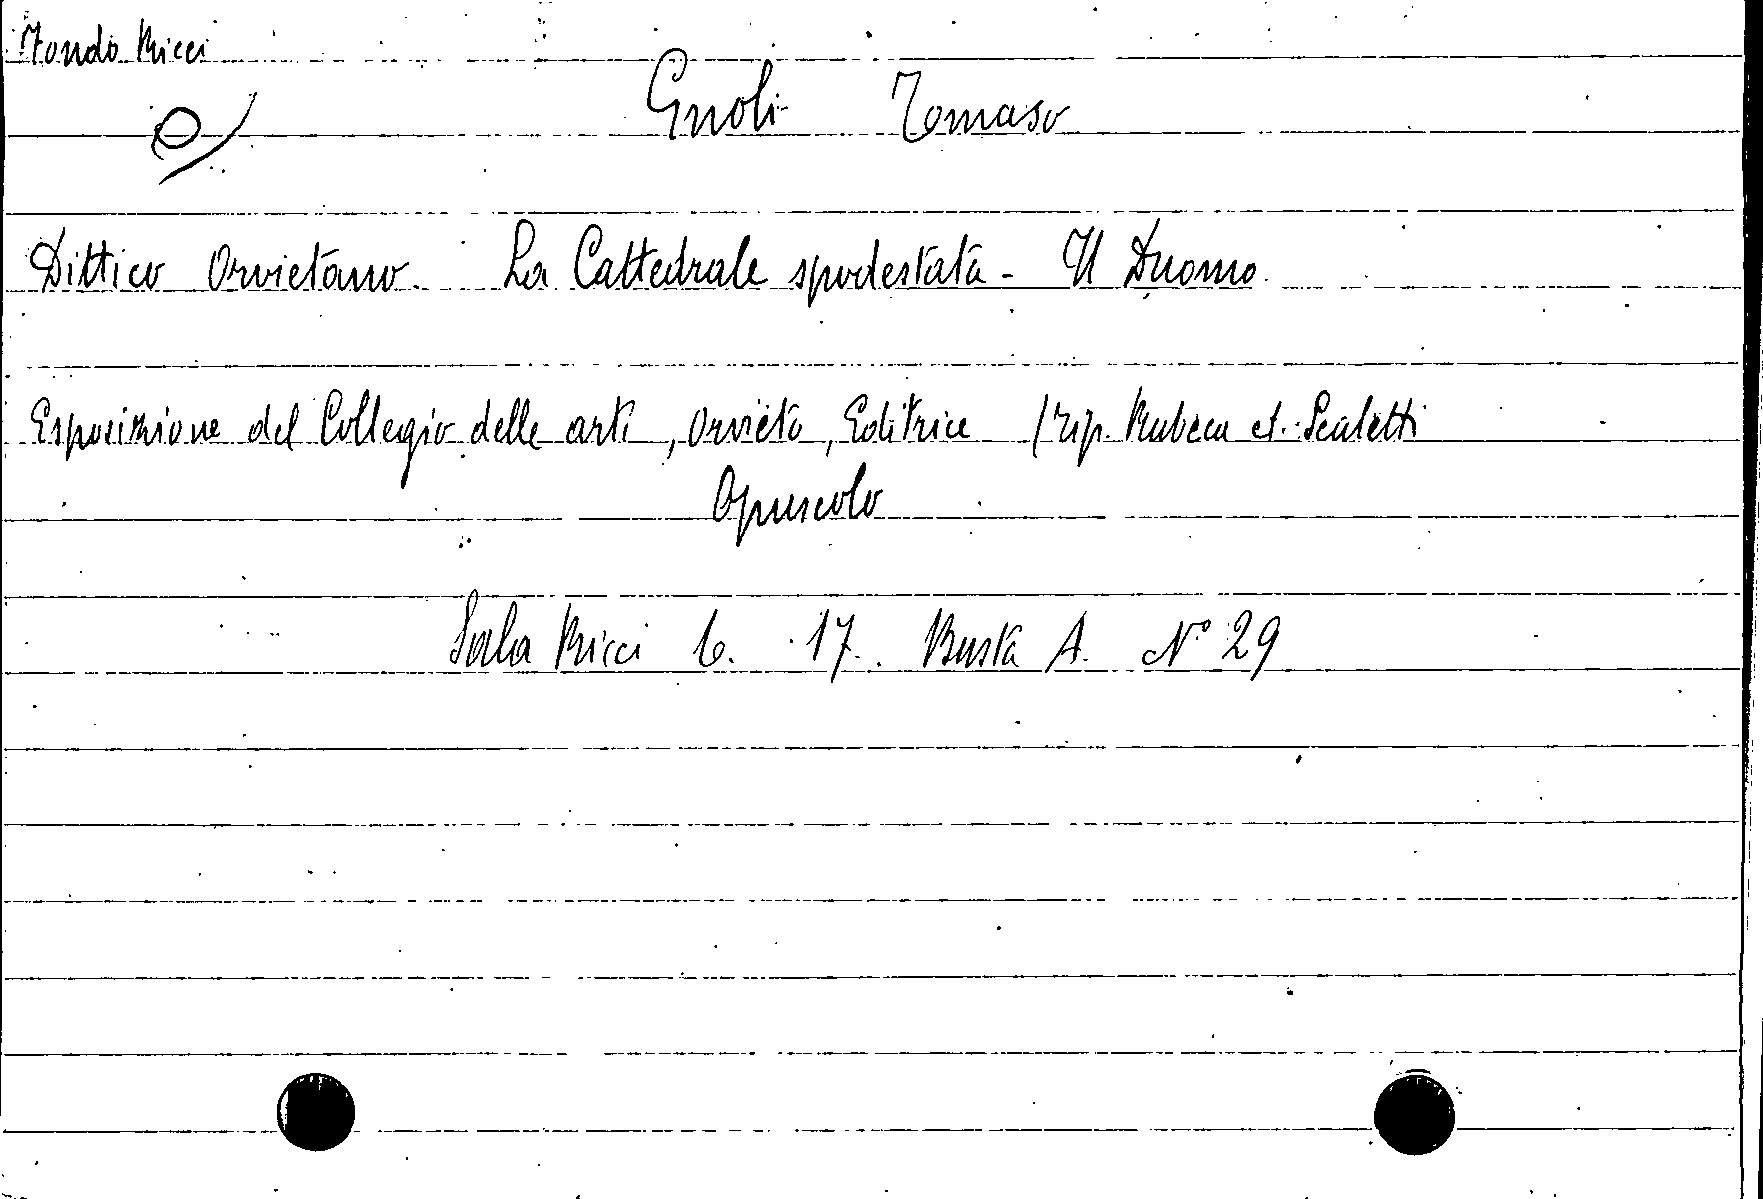 Fondo Ricci
Gnoli Tomaso
Dittico Orvietano. La Cattedrale spodestata - Il Duomo.
Esposizione del Collegio delle arti, Orvieto, Editrice /Tip. Rubeca et. Scaletti
Opuscolo
Sala Ricci 6. 17. Busta A. N° 29